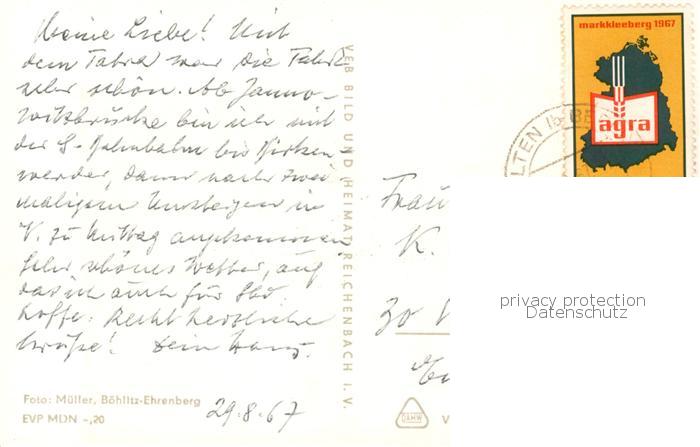 Meine Liebe! Mit
dem Tatra war die Fahrt
sehr schön. Ab Janno-
witzbrücke bin ich mit
der S-Bahn bis Birken
werder, dann nach zwei
maligem Umsteigen in
V. zu Mittag angekommen
Sehr schönes Wetter, auf
das ich auch für Sbd.
hoffe. Recht herzliche
Grüße! Dein
29.8.67
Foto: Müller, Böhlitz-Ehrenberg
EVP MDN -,20
VEB BILD UND HEIMAT REICHENBACH I. V.
markkleeberg 1967
agra
Frau
K.
DAMW
V
privacy protection
Datenschutz